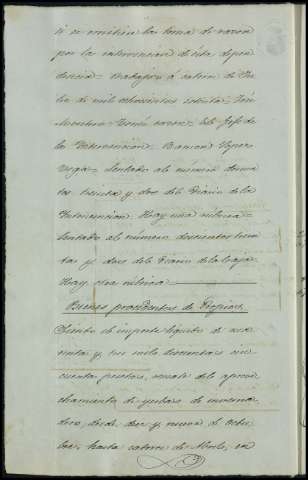 ti se omitiera la toma de razon
por la intervencion de esta depen
dencia = Zaragoza á catorce de Ju
lio de mil ochocientos setenta = José
Montero = Tomé razon = El Jefe de
la Intervencion = Ramon Lopez
Vega = Sentado al número doscien
tos treinta y dos del Diario de la
Intervencion = Hay una rúbrica =
Sentado al número doscientos trein
ta y dos del Diario de la Caja
Hay otra rúbrica
Bienes procedentes de Propios
Siendo el importe líquido de
y tres mil doscientas cin
cuenta pesetas, remate del aprove
chamiento de yerbas de inverna
dero, desde diez y nueve de Octu
bre, hasta catorce de Abril, en